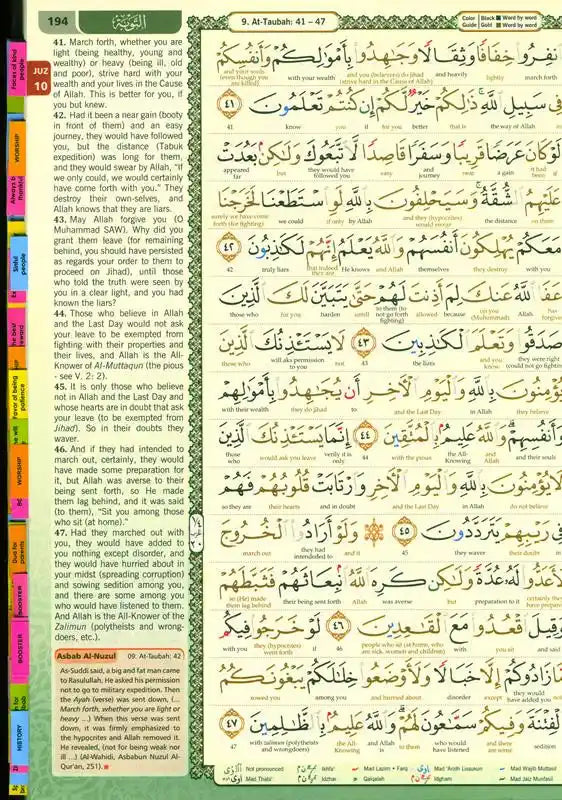 194
التوبة
9. At-Taubah: 41 – 47
Color Guide
Black Gold
Word by word
Word by word
JUZ 10
41. March forth, whether you are
light (being healthy, young and
wealthy) or heavy (being ill, old
and poor), strive hard with your
wealth and your lives in the Cause
of Allah. This is better for you, if
you but knew.
42. Had it been a near gain (booty
in front of them) and an easy
journey, they would have followed
you, but the distance (Tabuk
expedition) was long for them,
and they would swear by Allah, "If
we only could, we would certainly
have come forth with you." They
destroy their own-selves, and
Allah knows that they are liars.
43. May Allah forgive you (O
Muhammad SAW). Why did you
grant them leave (for remaining
behind, you should have persisted
as regards your order to them to
proceed on Jihad), until those
who told the truth were seen by
you in a clear light, and you had
known the liars?
44. Those who believe in Allah
and the Last Day would not ask
your leave to be exempted from
fighting with their properties and
their lives, and Allah is the All-
Knower of Al-Muttaqun (the pious
- see V. 2: 2).
45. It is only those who believe
not in Allah and the Last Day and
whose hearts are in doubt that ask
your leave (to be exempted from
Jihad). So in their doubts they
waver.
46. And if they had intended to
march out, certainly, they would
have made some preparation for
it, but Allah was averse to their
being sent forth, so He made
them lag behind, and it was said
(to them), "Sit you among those
who sit (at home)."
47. Had they marched out with
you, they would have added to
you nothing except disorder, and
they would have hurried about in
your midst (spreading corruption)
and sowing sedition among you,
and there are some among you
who would have listened to them.
And Allah is the All-Knower of the
Zalimun (polytheists and wrong-
doers, etc.).
Asbab Al-Nuzul 09: At-Taubah: 42
As-Suddi said, a big and fat man came
to Rasulullah. He asked his permission
not to go to military expedition. Then
the Ayah (verse) was sent down, (...
March forth, whether you are light or
heavy ...) When this verse was sent
down, it was firmly emphasized to
the hypocrites and Allah removed it.
He revealed, (not for being weak nor
ill ...) (Al-Wahidi, Asbabun Nuzul Al-
Qur'an, 251).
انفروا خفافا وثقالا وجاهدوا بأموالكم وأنفسكم
and your souls (even though you are killed) with your wealth and you (believers) do Jihad (strive hard in the Cause of Allah) and heavily lightly march forth
في سبيل الله ذلكم خير لكم إن كنتم تعلمون ٤١
41 know you if for you better that is the way of Allah in
لو كان عرضا قريبا وسفرا قاصدا لاتبعوك ولكن بعدت
appeared far but they would have followed you easy and journey near a gain it had been if
عليهم الشقة وسيحلفون بالله لو استطعنا لخرجنا
surely we have come forth (for fighting) we could if only by Allah and they (hypocrites) would swear the distance on them
معكم يهلكون أنفسهم والله يعلم إنهم لكاذبون ٤٢
42 truly liars that indeed they are He knows and Allah themselves they destroy with you
عفا الله عنك لم أذنت لهم حتى يتبين لك الذين
those who for you harden until to them (to not go forth fighting) allowed because on you (Muhammad) Allah has forgiven
صدقوا وتعلم الكاذبين ٤٣ لا يستئذنك الذين
those who will aks permission to you not 43 the liars and you know they were right (could not go fighting)
يؤمنون بالله واليوم الآخر أن يجاهدوا بأموالهم
with their wealth they do jihad to and the Last Day in Allah they believe
وأنفسهم والله عليم بالمتقين ٤٤ إنما يستئذنك الذين
those who would ask you leave verily it is only 44 with the pious the All-Knowing and Allah and their souls
لا يؤمنون بالله واليوم الآخر وارتابت قلوبهم فهم
so they are their hearts and in doubt and the Last Day in Allah do not believe
في ريبهم يترددون ٤٥ ولو أرادوا الخروج
march out they had intendeded to and if 45 they waver their doubt in
لأعدوا له عدة ولكن كره الله انبعاثهم فثبطهم
so (He) made them lag behind their being sent forth Allah was averse but preparation to it certainly they have prepared
وقيل اقعدوا مع القاعدين ٤٦ لو خرجوا فيكم
with you they (hypocrites) went forth if 46 people who sit (at home, who are sick, women and children) with you sit and said
ما زادوكم إلا خبالا ولأوضعوا خلالكم يبغونكم
sowed you among you and hurried about disorder except they would have added you not
الفتنة وفيكم سماعون لهم والله عليم بالظالمين ٤٧
47 with zalimun (polytheists and wrongdoers) the All-Knowing and Allah to them who would have listened and there are some sedition
Not pronounced Ikhfa' Mad Lazim + Farq Mad 'Aridh Lissukun Mad Wajib Muttasil
Mad Thabi' Idzhar Qalqalah Idgham Mad Jaiz Munfasil
WORSHIP
Sinful people
WORSHIP
Due for parents
BOOSTER
BOOSTER
HISTORY